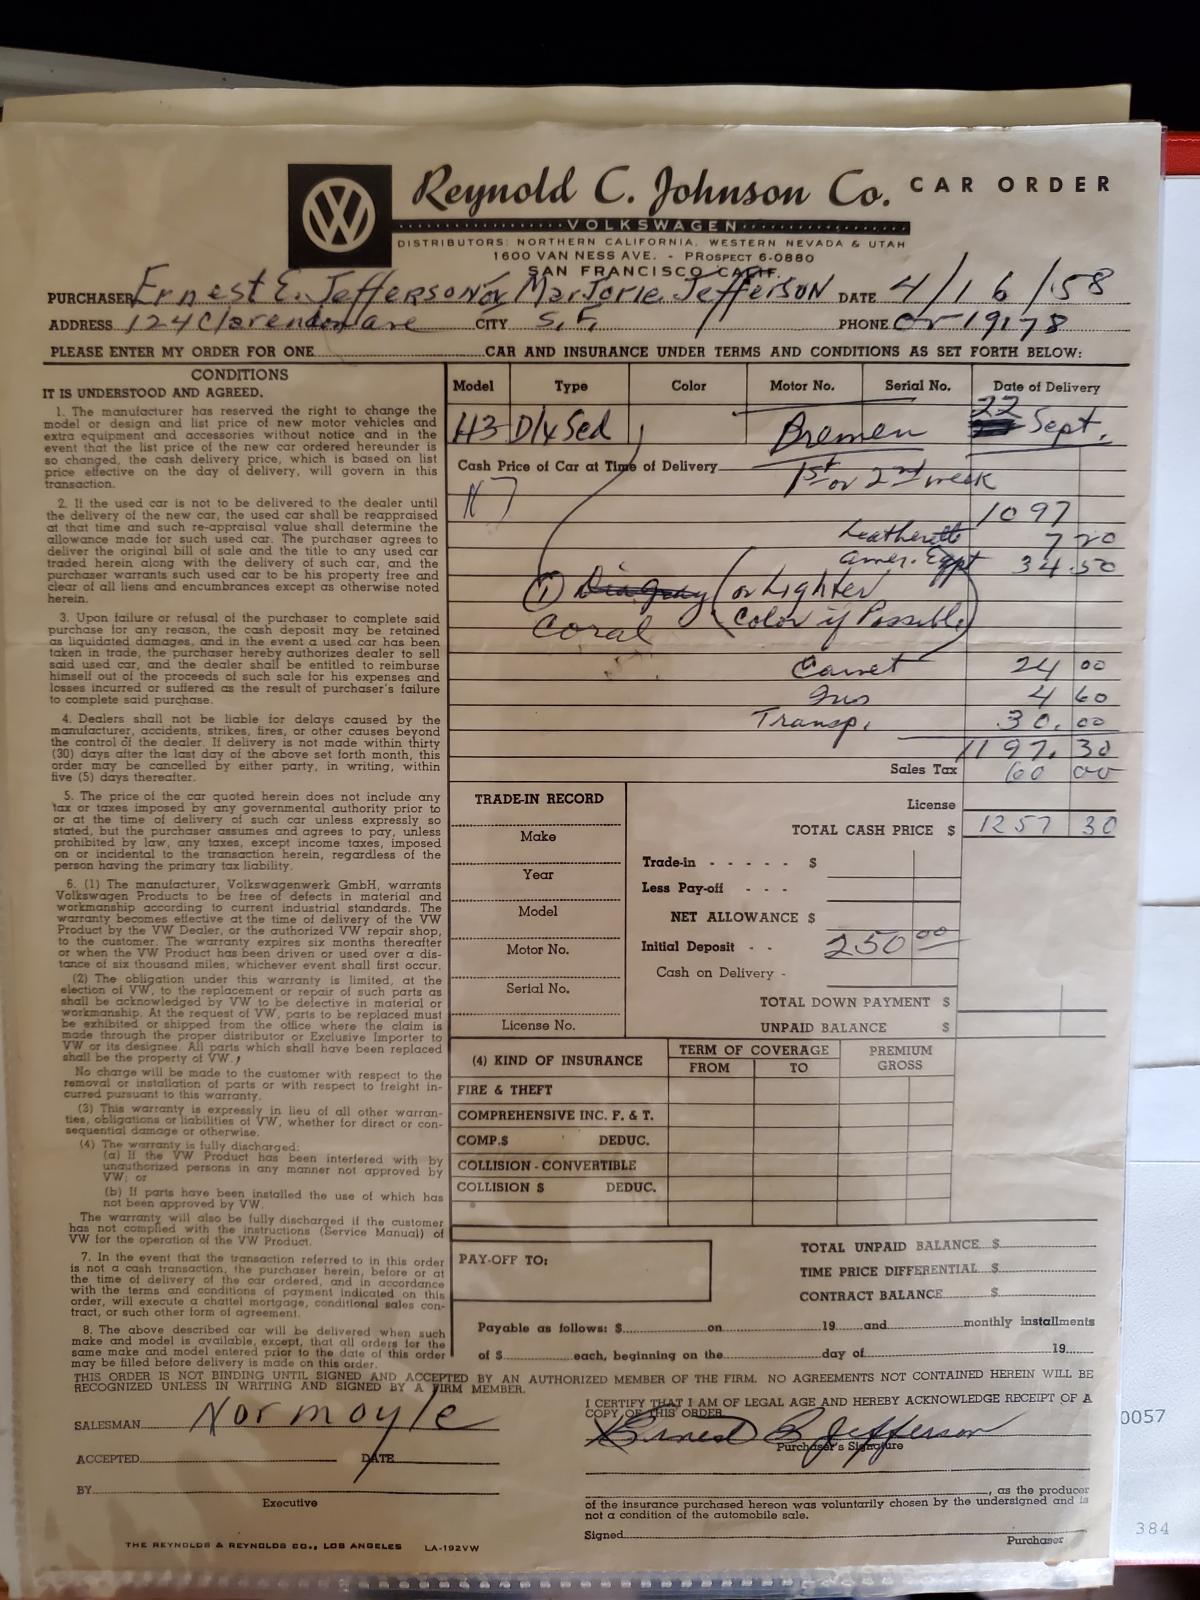 Reynold C. Johnson Co. CAR ORDER
VOLKSWAGEN
DISTRIBUTORS: NORTHERN CALIFORNIA, WESTERN NEVADA & UTAH
1600 VAN NESS AVE. - PROSPECT 6-0880
SAN FRANCISCO, CALIF.
PURCHASER Ernest E. Jefferson or Marjorie Jefferson DATE 4/16/58
ADDRESS 124 Clarendon ave CITY S.F. PHONE or 19178
PLEASE ENTER MY ORDER FOR ONE CAR AND INSURANCE UNDER TERMS AND CONDITIONS AS SET FORTH BELOW:
CONDITIONS
IT IS UNDERSTOOD AND AGREED.
1. The manufacturer has reserved the right to change the
model or design and list price of new motor vehicles and
extra equipment and accessories without notice and in the
event that the list price of the new car ordered hereunder is
so changed, the cash delivery price, which is based on list
price effective on the day of delivery, will govern in this
transaction.
2. If the used car is not to be delivered to the dealer until
the delivery of the new car, the used car shall be reappraised
at that time and such re-appraisal value shall determine the
allowance made for such used car. The purchaser agrees to
deliver the original bill of sale and the title to any used car
traded herein along with the delivery of such car, and the
purchaser warrants such used car to be his property free and
clear of all liens and encumbrances except as otherwise noted
herein.
3. Upon failure or refusal of the purchaser to complete said
purchase for any reason, the cash deposit may be retained
as liquidated damages, and in the event a used car has been
taken in trade, the purchaser hereby authorizes dealer to sell
said used car, and the dealer shall be entitled to reimburse
himself out of the proceeds of such sale for his expenses and
losses incurred or suffered as the result of purchaser's failure
to complete said purchase.
4. Dealers shall not be liable for delays caused by the
manufacturer, accidents, strikes, fires, or other causes beyond
the control of the dealer. If delivery is not made within thirty
(30) days after the last day of the above set forth month, this
order may be cancelled by either party, in writing, within
five (5) days thereafter.
5. The price of the car quoted herein does not include any
tax or taxes imposed by any governmental authority prior to
or at the time of delivery of such car unless expressly so
stated, but the purchaser assumes and agrees to pay, unless
prohibited by law, any taxes, except income taxes, imposed
on or incidental to the transaction herein, regardless of the
person having the primary tax liability.
6. (1) The manufacturer, Volkswagenwerk GmbH, warrants
Volkswagen Products to be free of defects in material and
workmanship according to current industrial standards. The
warranty becomes effective at the time of delivery of the VW
Product by the VW Dealer, or the authorized VW repair shop,
to the customer. The warranty expires six months thereafter
or when the VW Product has been driven or used over a dis-
tance of six thousand miles, whichever event shall first occur.
(2) The obligation under this warranty is limited, at the
election of VW, to the replacement or repair of such parts as
shall be acknowledged by VW to be defective in material or
workmanship. At the request of VW, parts to be replaced must
be exhibited or shipped from the office where the claim is
made through the proper distributor or Exclusive Importer to
VW or its designee. All parts which shall have been replaced
shall be the property of VW.
No charge will be made to the customer with respect to the
removal or installation of parts or with respect to freight in-
curred pursuant to this warranty.
(3) This warranty is expressly in lieu of all other warran-
ties, obligations or liabilities of VW, whether for direct or con-
sequential damage or otherwise.
(4) The warranty is fully discharged:
(a) If the VW Product has been interfered with by
unauthorized persons in any manner not approved by
VW; or
(b) If parts have been installed the use of which has
not been approved by VW.
The warranty will also be fully discharged if the customer
has not complied with the instructions (Service Manual) of
VW for the operation of the VW Product.
7. In the event that the transaction referred to in this order
is not a cash transaction, the purchaser herein, before or at
the time of delivery of the car ordered, and in accordance
with the terms and conditions of payment indicated on this
order, will execute a chattel mortgage, conditional sales con-
tract, or such other form of agreement.
8. The above described car will be delivered when such
make and model is available, except, that all orders for the
same make and model entered prior to the date of this order
may be filled before delivery is made on this order.
Model Type Color Motor No. Serial No. Date of Delivery
113 Dlx Sed Bremen 22 Sept.
Cash Price of Car at Time of Delivery 1st or 2nd week
N7
1097
Leatherette 7 20
Amer. Eqpt 34.50
① (or Lighter
Coral Color if Possible)
Carnet 24 00
Ins 4 60
Transp. 30.00
1197.30
Sales Tax 60 00
License
TOTAL CASH PRICE $ 1257 30
TRADE-IN RECORD
Make
Year
Model
Motor No.
Serial No.
License No.
Trade-in $
Less Pay-off
NET ALLOWANCE $
Initial Deposit 250 00
Cash on Delivery
TOTAL DOWN PAYMENT $
UNPAID BALANCE $
(4) KIND OF INSURANCE TERM OF COVERAGE PREMIUM
FROM TO GROSS
FIRE & THEFT
COMPREHENSIVE INC. F. & T.
COMP.$ DEDUC.
COLLISION - CONVERTIBLE
COLLISION $ DEDUC.
PAY-OFF TO:
TOTAL UNPAID BALANCE $
TIME PRICE DIFFERENTIAL $
CONTRACT BALANCE $
Payable as follows: $ on 19 and monthly installments
of $ each, beginning on the day of 19
THIS ORDER IS NOT BINDING UNTIL SIGNED AND ACCEPTED BY AN AUTHORIZED MEMBER OF THE FIRM. NO AGREEMENTS NOT CONTAINED HEREIN WILL BE
RECOGNIZED UNLESS IN WRITING AND SIGNED BY A FIRM MEMBER.
SALESMAN Normoyle
ACCEPTED DATE
BY
Executive
I CERTIFY THAT I AM OF LEGAL AGE AND HEREBY ACKNOWLEDGE RECEIPT OF A
COPY OF THIS ORDER
Ernest E Jefferson
Purchaser's Signature
, as the producer
of the insurance purchased hereon was voluntarily chosen by the undersigned and is
not a condition of the automobile sale.
Signed Purchaser
THE REYNOLDS & REYNOLDS CO., LOS ANGELES LA-192VW
0057
384